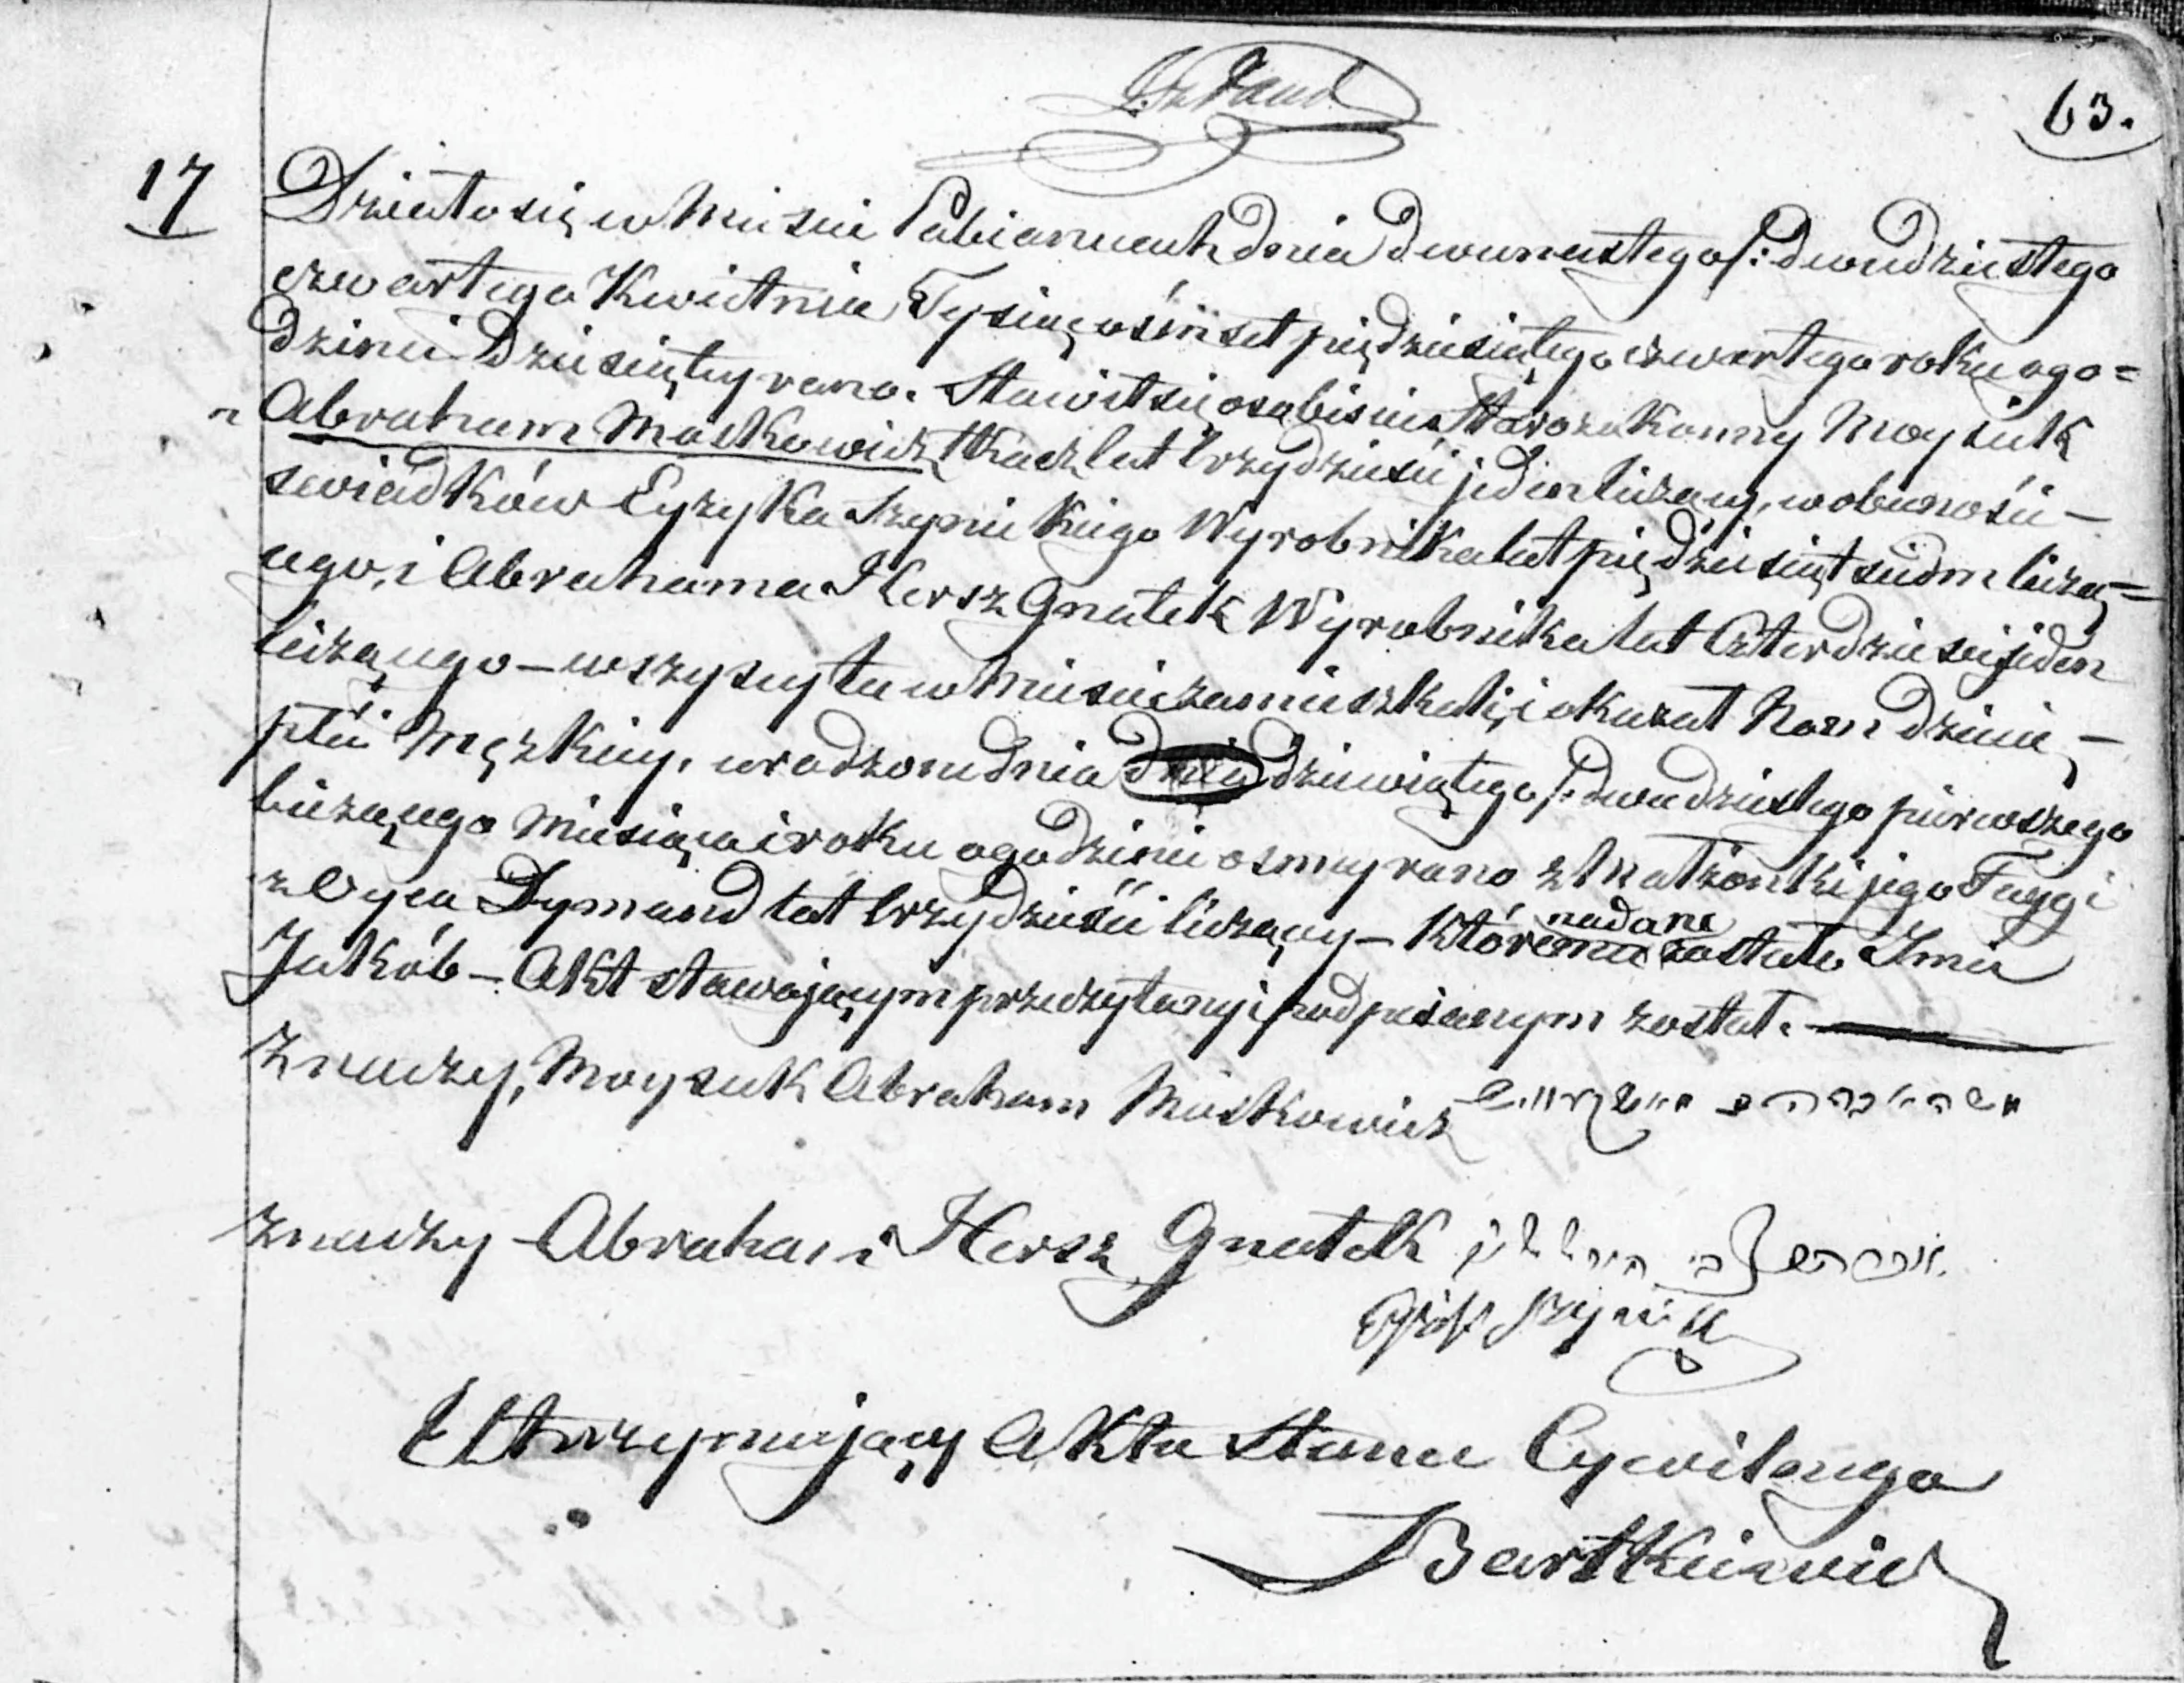 63.
17
Działo się w Mieście Pabianicach dnia dwunastego /: dwudziestego
czwartego Kwietnia Tysiąc ośmset piędziesiątego czwartego roku o go=
dzinie Dziesiątey rano. Stawił się osobiście Starozakonny Moysiek
Abraham Moskowicz Tkacz lat trzydzieści jeden liczący, w obecności –
swiadków Eyzyka Szynickiego Wyrobnika lat piędziesiąt siedm liczą=
cego, i Abrahama Hersz Gnatek Wyrobnika lat Czterdzieści jeden
liczącego – wszyscy tu w Mieście zamieszkali, i okazał Nam dziecie –
płci Męzkiey, urodzone dnia dziewiątego /: dwudziestego pierwszego
bieżącego Miesiąca i roku o godzinie osmey rano z Małżonki jego Faygi
z Oyca Dymand lat trzydzieści liczącey – Któremu nadane zostało Imie
Jakób – Akt stawającym przeczytany i podpisanym został. –
Znaczy, Moysiek Abraham Moskowicz
znaczy Abraham Hersz Gnatek
Utrzymujący Akta Stanu Cywilnego
Bartkiewicz